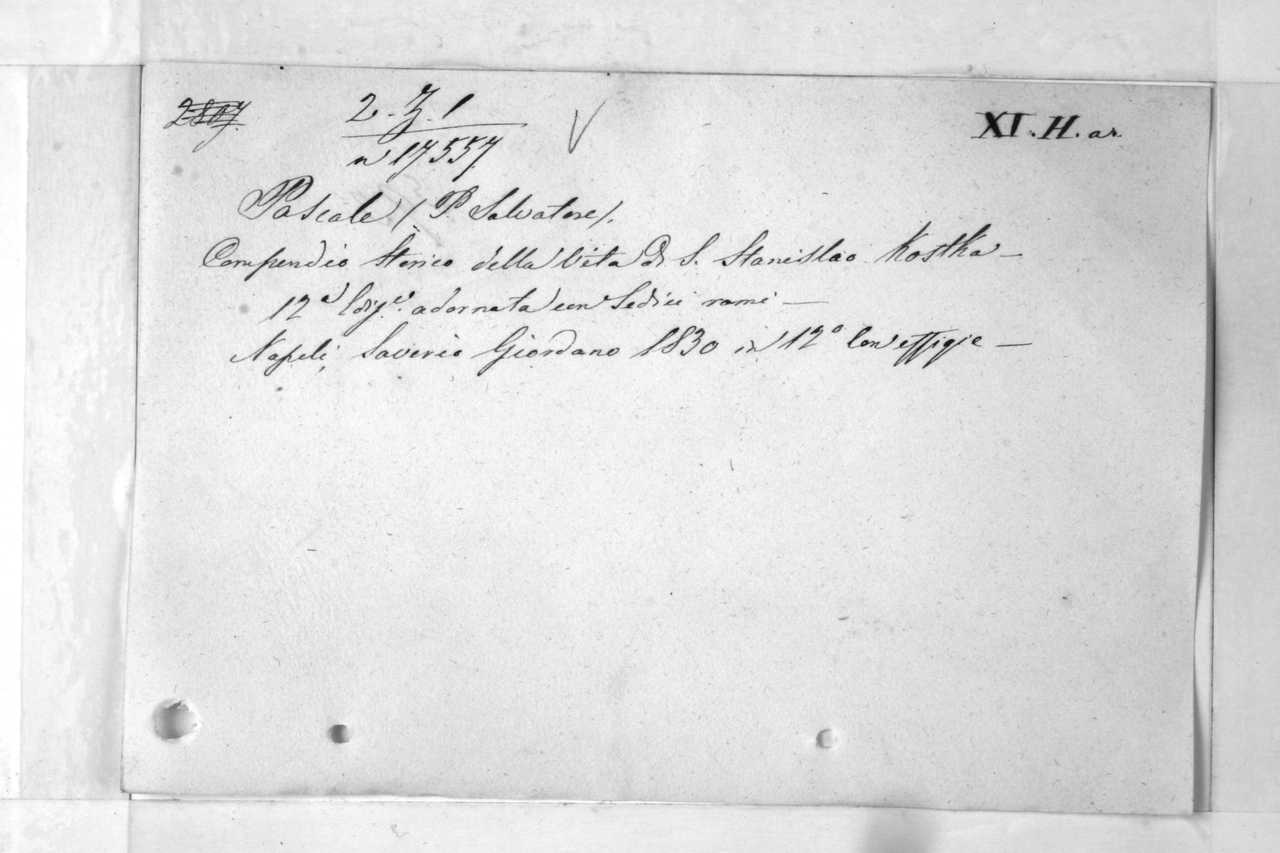 2-Z.1
XI. H. ar.
n 17557
Pascale (P. Salvatore).
Compendio Storico della Vita di S. Stanislao Kostka —
12ª Ediz.e adornata con Sedici rami —
Napoli, Saverio Giordano 1830 in 12º con effigie —